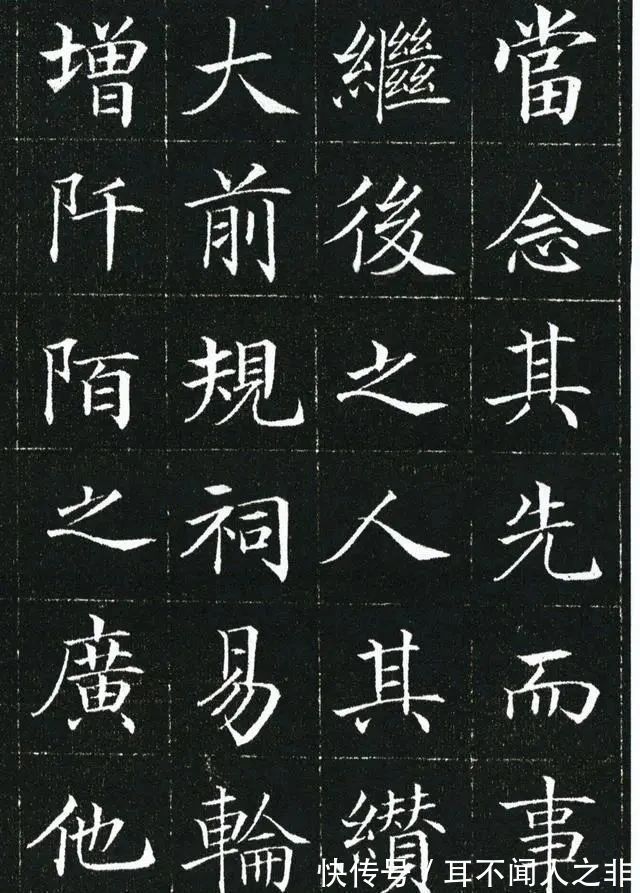 當念其先而事
繼後之人其纘
大前規祠易輪
增阡陌之廣他
快传号/耳不闻人之非